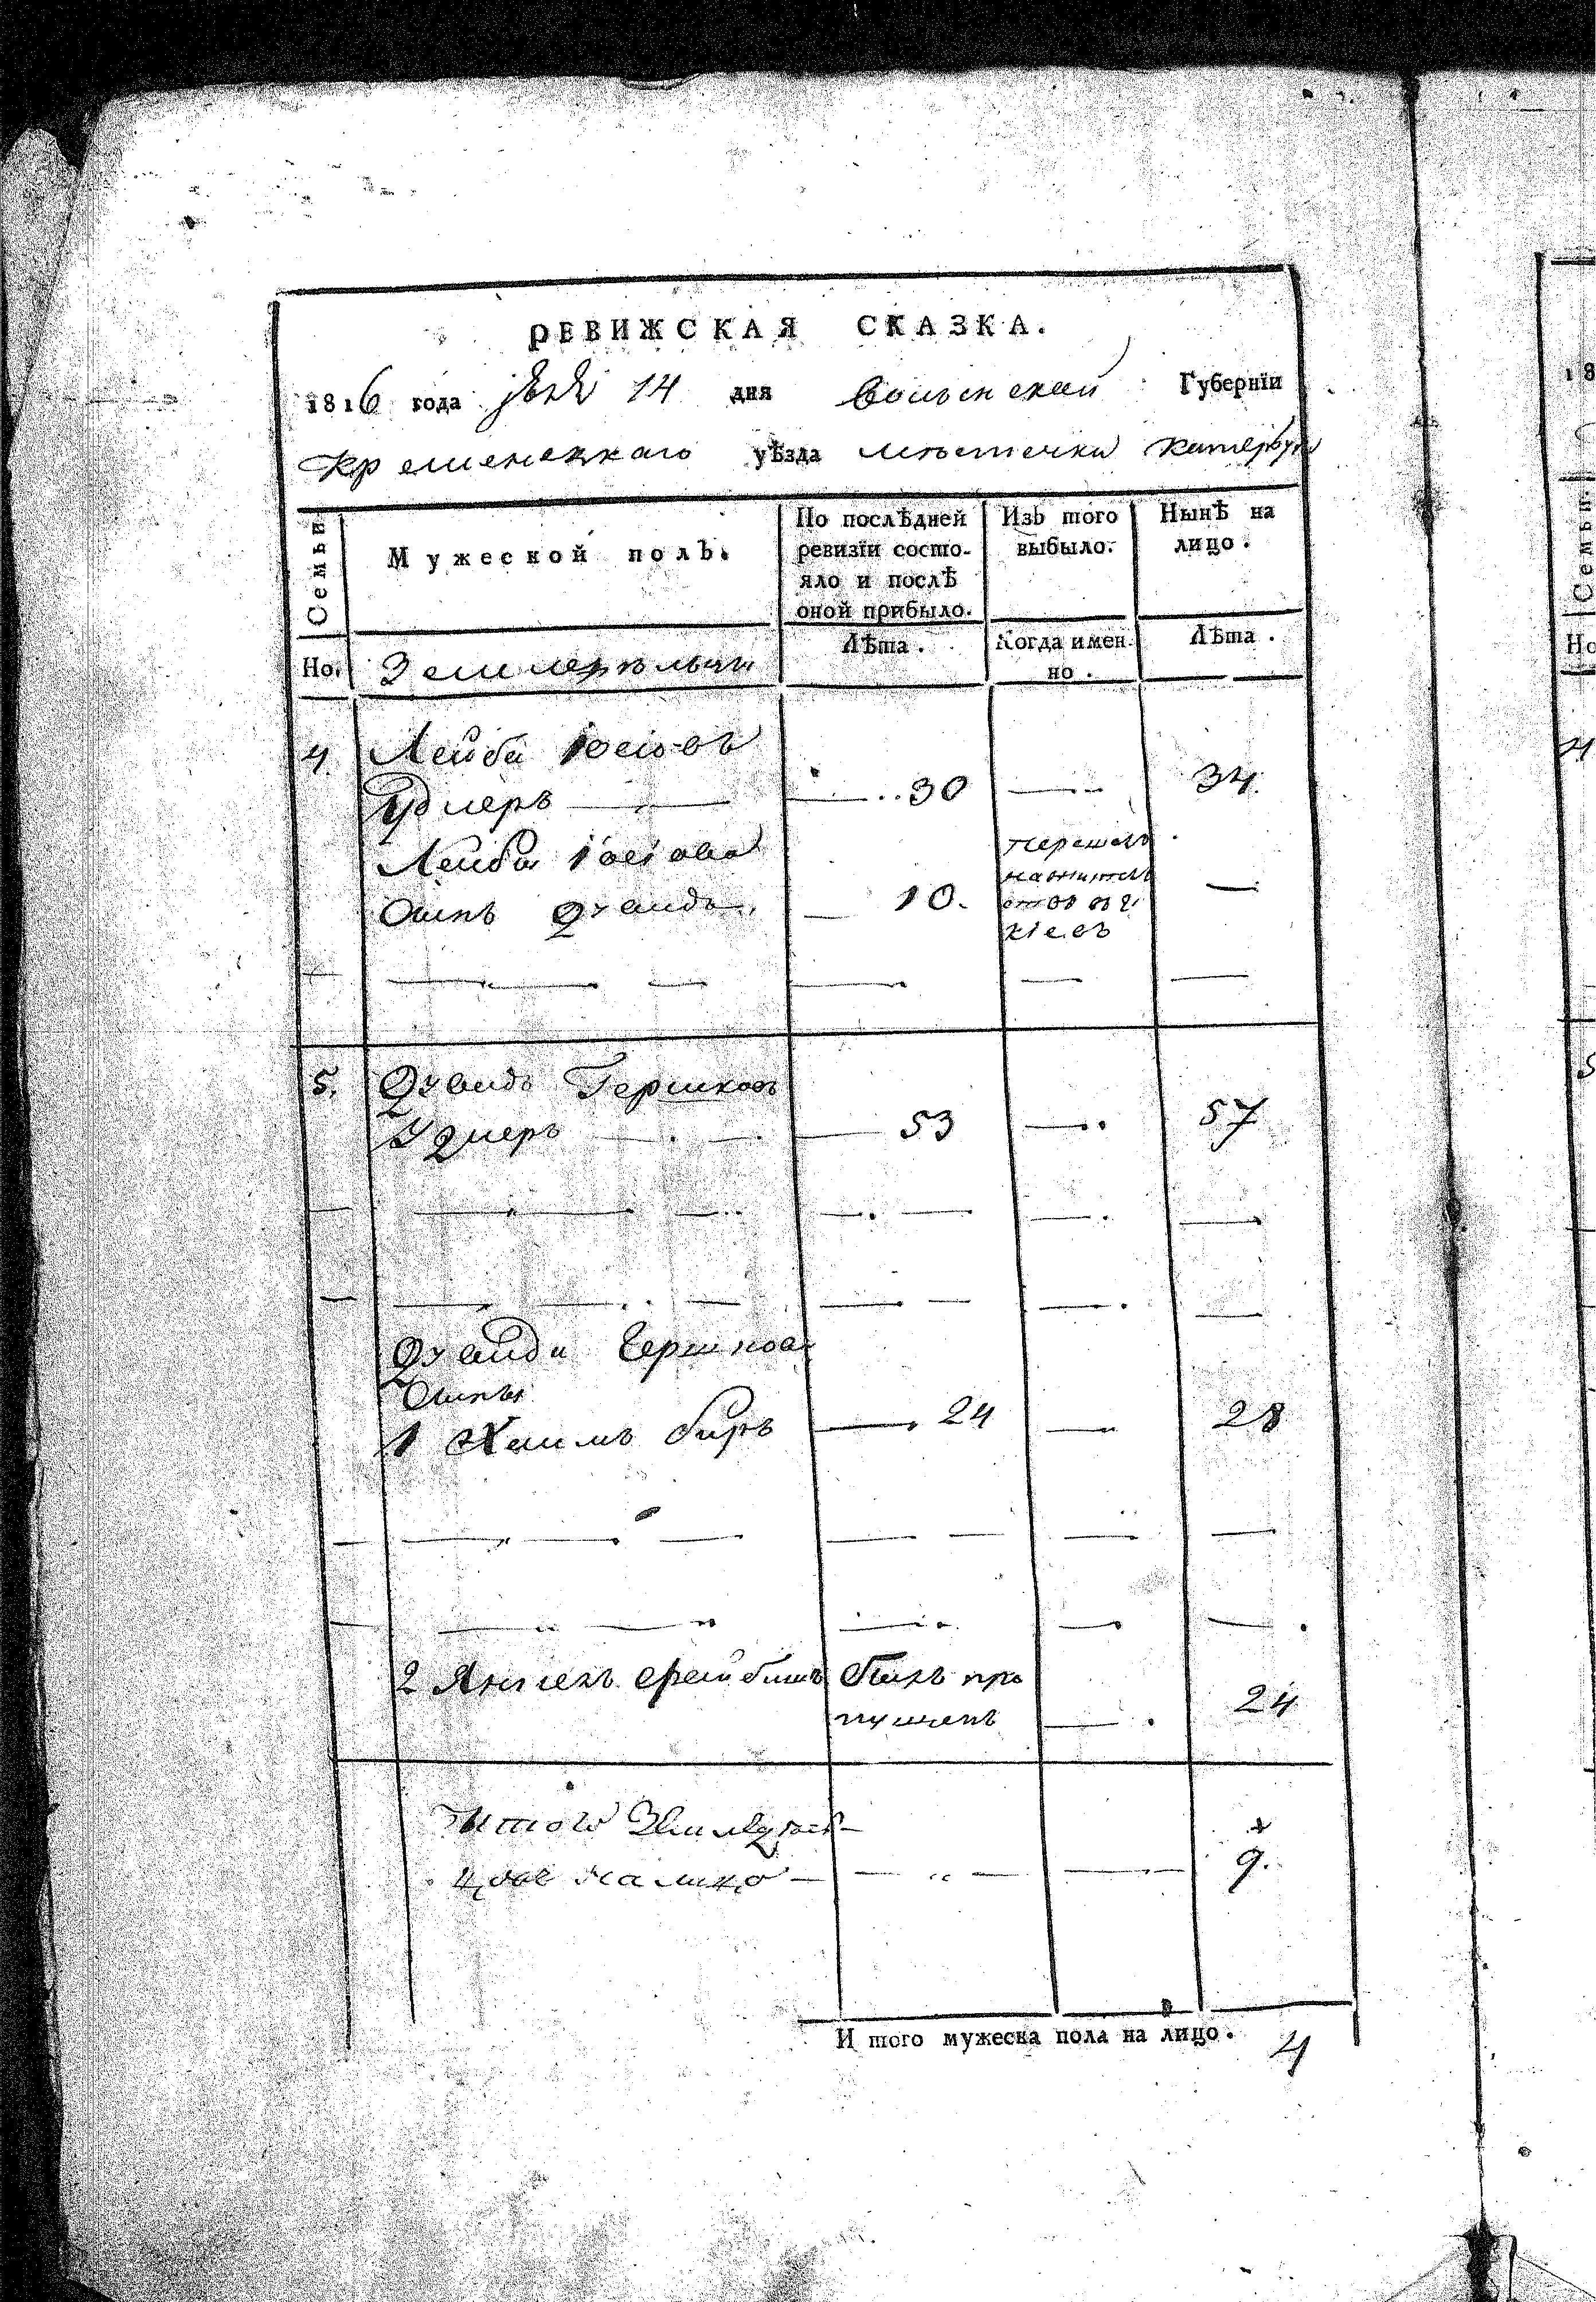 РЕВИЖСКАЯ СКАЗКА.
1816 года 14 дня Волынской Губернїи
Кременецкаго уѣзда мѣстечка Катербурга
Семьи.
Мужеской полъ.
По послѣдней ревизїи состо-
яло и послѣ
оной прибыло.
Изъ того
выбыло.
Нынѣ на
лицо.
Но.
Земледѣльцы
Лѣта.
Когда имен-
но.
Лѣта.
4. Лейба Іосіовъ
Удлеръ 30 34.
Лейбы Іосіова
сынъ Дувидъ 10.
перешелъ
на житель
ство въ г.
Кіевъ
5. Дувидъ Гершковъ
Удлеръ 53 57
Дувида Гершкова
сынъ
1 Хаимъ Беръ 24 28
2 Янкель Фейбишъ былъ про
пущенъ 24
Итого Земледѣль
цовъ на лицо 9.
И того мужеска пола на лицо. 4